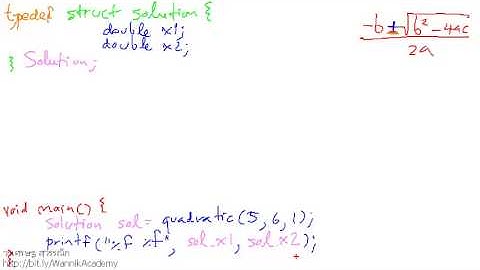 typedef struct solution {
double x1;
double x2;
} Solution;
-b ± √b² - 4ac
2a
void main() {
Solution sol = quadratic(5, 6, 1);
printf("%f %f", sol.x1, sol.x2);
}
http://bit.ly/WannikAcademy